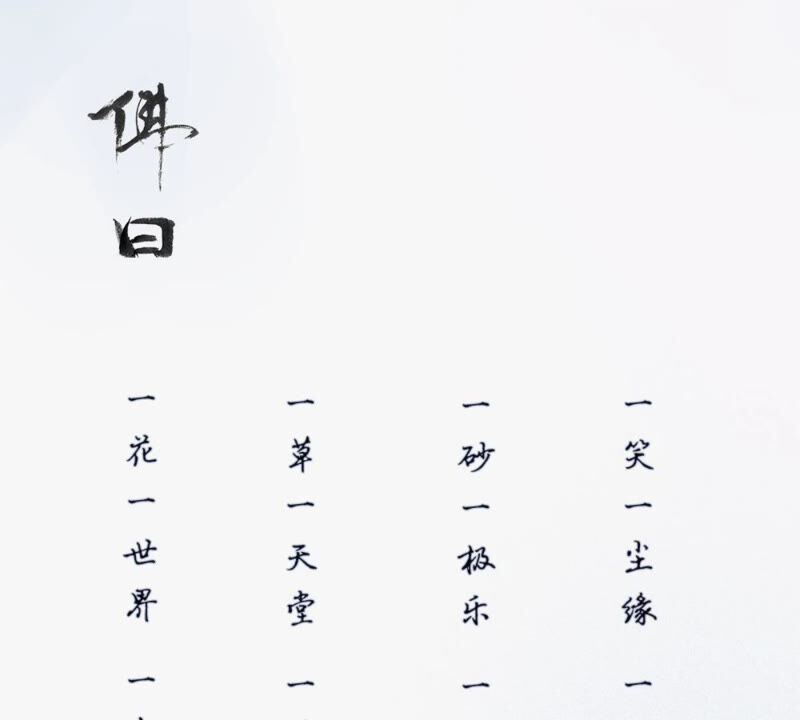 佛曰
一花一世界 一
一草一天堂 一
一砂一极乐 一
一笑一尘缘 一